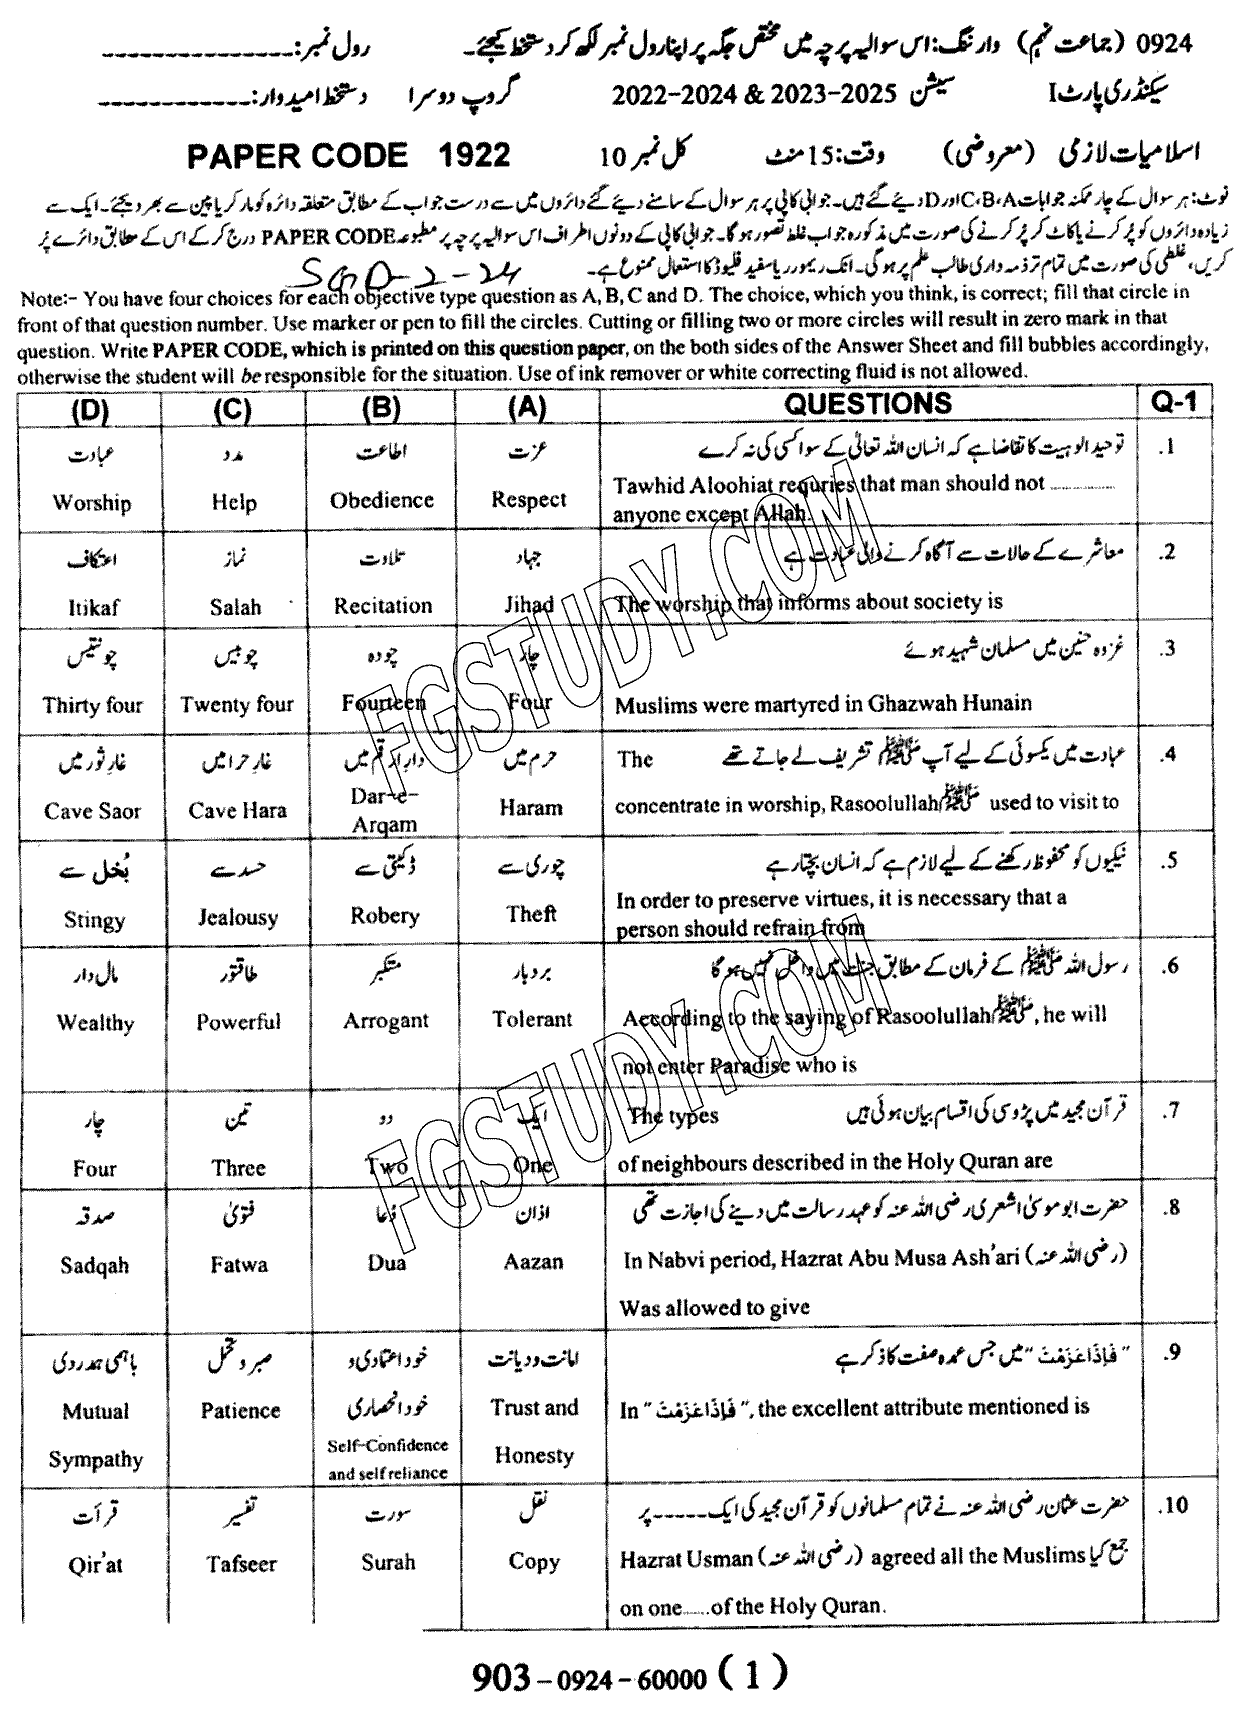 0924 (جماعت نہم) وارننگ: اس سوالیہ پرچہ میں مختص جگہ پر اپنا رول نمبر لکھ کر دستخط کیجئے۔ رول نمبر: ---------------
سیکنڈری پارٹ I سیشن 2022-2024 & 2023-2025 گروپ دوسرا دستخط امیدوار: ------------
اسلامیات لازمی (معروضی) وقت: 15 منٹ کل نمبر 10 PAPER CODE 1922
نوٹ: ہر سوال کے چار ممکنہ جوابات A، B، C اور D دیئے گئے ہیں۔ جوابی کاپی پر ہر سوال کے سامنے دیئے گئے دائروں میں سے درست جواب کے مطابق متعلقہ دائرہ کو مارکر یا پین سے بھر دیجئے۔ ایک سے
زیادہ دائروں کو پُر کرنے یا کاٹ کر پُر کرنے کی صورت میں مذکورہ جواب غلط تصور ہو گا۔ جوابی کاپی کے دونوں اطراف اس سوالیہ پرچہ پر مطبوعہ PAPER CODE درج کر کے اس کے مطابق دائرے پُر
کریں، غلطی کی صورت میں تمام تر ذمہ داری طالب علم پر ہو گی۔ انک ریموور یا سفید فلیوڈ کا استعمال ممنوع ہے۔
SGD-2-24
Note:- You have four choices for each objective type question as A, B, C and D. The choice, which you think, is correct; fill that circle in
front of that question number. Use marker or pen to fill the circles. Cutting or filling two or more circles will result in zero mark in that
question. Write PAPER CODE, which is printed on this question paper, on the both sides of the Answer Sheet and fill bubbles accordingly,
otherwise the student will be responsible for the situation. Use of ink remover or white correcting fluid is not allowed.
(D) (C) (B) (A) QUESTIONS Q-1
.1 توحید الوہیت کا تقاضا ہے کہ انسان اللہ تعالیٰ کے سوا کسی کی نہ کرے
عزت اطاعت مدد عبادت
Tawhid Aloohiat requries that man should not ...............
anyone except Allah.
Worship Help Obedience Respect
.2 معاشرے کے حالات سے آگاہ کرنے والی عبادت ہے
جہاد تلاوت نماز اعتکاف
The worship that informs about society is
Itikaf Salah Recitation Jihad
.3 غزوہ حنین میں مسلمان شہید ہوئے
چار چودہ چوبیس چونتیس
Muslims were martyred in Ghazwah Hunain
Thirty four Twenty four Fourteen Four
.4 عبادت میں یکسوئی کے لیے آپ ﷺ تشریف لے جاتے تھے The
حرم میں دار ارقم میں غار حرا میں غار ثور میں
concentrate in worship, Rasoolullah ﷺ used to visit to
Cave Saor Cave Hara Dar-e-
Arqam Haram
.5 نیکیوں کو محفوظ رکھنے کے لیے لازم ہے کہ انسان بچتا رہے
چوری سے ڈکیتی سے حسد سے بُخل سے
In order to preserve virtues, it is necessary that a
person should refrain from
Stingy Jealousy Robery Theft
.6 رسول اللہ ﷺ کے فرمان کے مطابق جنت میں داخل نہیں ہو گا
بردبار متکبر طاقتور مال دار
According to the saying of Rasoolullah ﷺ, he will
not enter Paradise who is
Wealthy Powerful Arrogant Tolerant
.7 قرآن مجید میں پڑوسی کی اقسام بیان ہوئی ہیں The types
ایک دو تین چار
of neighbours described in the Holy Quran are
Four Three Two One
.8 حضرت ابو موسیٰ اشعری رضی اللہ عنہ کو عہد رسالت میں دینے کی اجازت تھی
اذان دُعا فتویٰ صدقہ
In Nabvi period, Hazrat Abu Musa Ash'ari (رضی اللہ عنہ)
Was allowed to give
Sadqah Fatwa Dua Aazan
.9 "فَاِذَا عَزَمْتَ" میں جس عمدہ صفت کا ذکر ہے
امانت و دیانت خود اعتمادی و
خود انحصاری صبر و تحمل باہمی ہمدردی
In "فَاِذَا عَزَمْتَ", the excellent attribute mentioned is
Mutual
Sympathy Patience Self-Confidence
and self reliance Trust and
Honesty
.10 حضرت عثمان رضی اللہ عنہ نے تمام مسلمانوں کو قرآن مجید کی ایک ----- پر
جمع کیا
نقل سورت تفسیر قرأت
Hazrat Usman (رضی اللہ عنہ) agreed all the Muslims
on one......of the Holy Quran.
Qir'at Tafseer Surah Copy
FGSTUDY.COM
FGSTUDY.COM
903-0924-60000 (1)